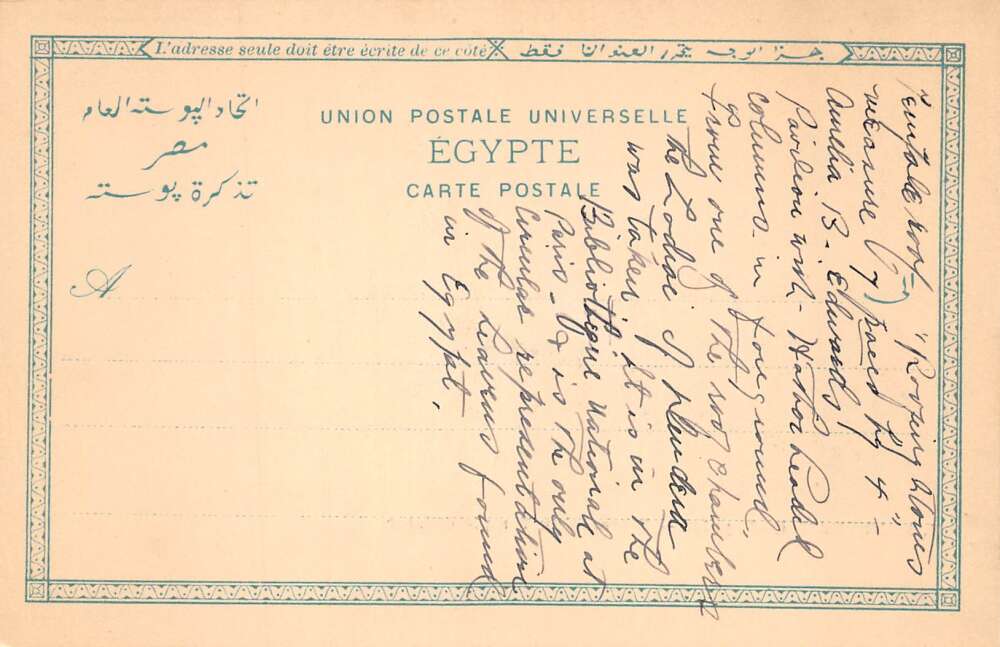 L'adresse seule doit être écrite de ce côté
هذا الوجه يتحرر العنوان فقط
اتحاد البوسته العام
مصر
تذكرة بوسته
UNION POSTALE UNIVERSELLE
ÉGYPTE
CARTE POSTALE
A
Temple roof = "Roofing Stones
measure (7) paces by 4 -"
Amelia B. Edwards.
Pavilion with - Hathor headed
columns - in foreground,
From one of the roof chambers
the Zodiac of Dendera
was taken. It is in the
Bibliotheque Nationale at
Paris - & is the only
Circular representation
of the heavens found
in Egypt.